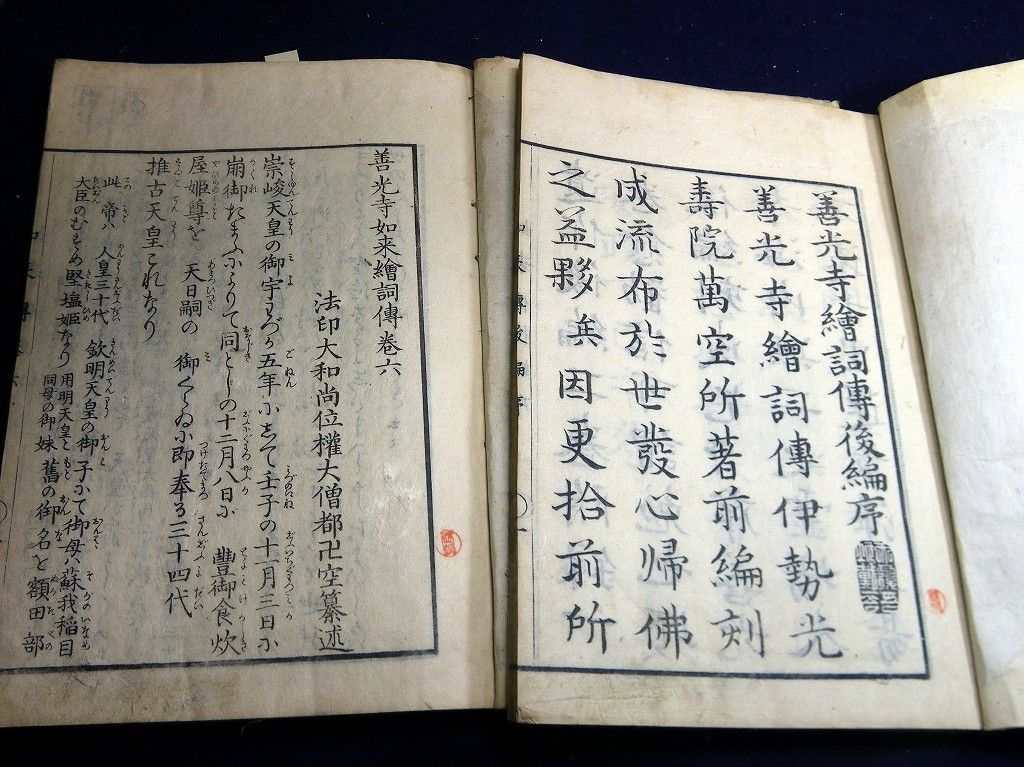 善光寺繪詞傳後編序
善光寺繪詞傳伊勢光
壽院萬空所著前編刻
成流布於世發心帰佛
之益夥矣因更拾前所
善光寺如来繪詞傳卷六
法印大和尚位權大僧都卍空纂述
崇峻天皇の御宇わづか五年にして壬子の十一月三日に
崩御たまふによりて同としの十二月八日に 豐御食炊
屋姫尊を 天日嗣の 御くらゐに即奉る三十四代
推古天皇これなり
此帝ハ 人皇三十代 欽明天皇の御子にて御母ハ蘇我稲目
大臣のむすめ堅塩姫なり 用明天皇と
同母の御妹 舊の御名を額田部